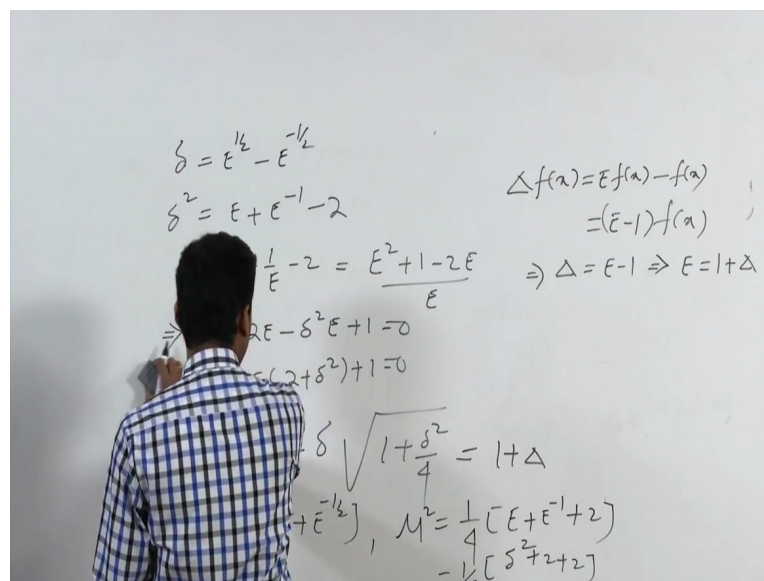 δ = E^{1/2} − E^{-1/2}
δ² = E + E^{-1} − 2
1/E − 2 = (E² + 1 − 2E)/E
⇒ 2E − δ²E + 1 = 0
(2 + δ²) + 1 = 0
δ √(1 + δ²/4) = 1 + Δ
+ E^{-1/2}], μ² = 1/4 [E + E^{-1} + 2]
[δ² + 2 + 2]
Δf(x) = Ef(x) − f(x)
= (E − 1) f(x)
⇒ Δ = E − 1 ⇒ E = 1 + Δ